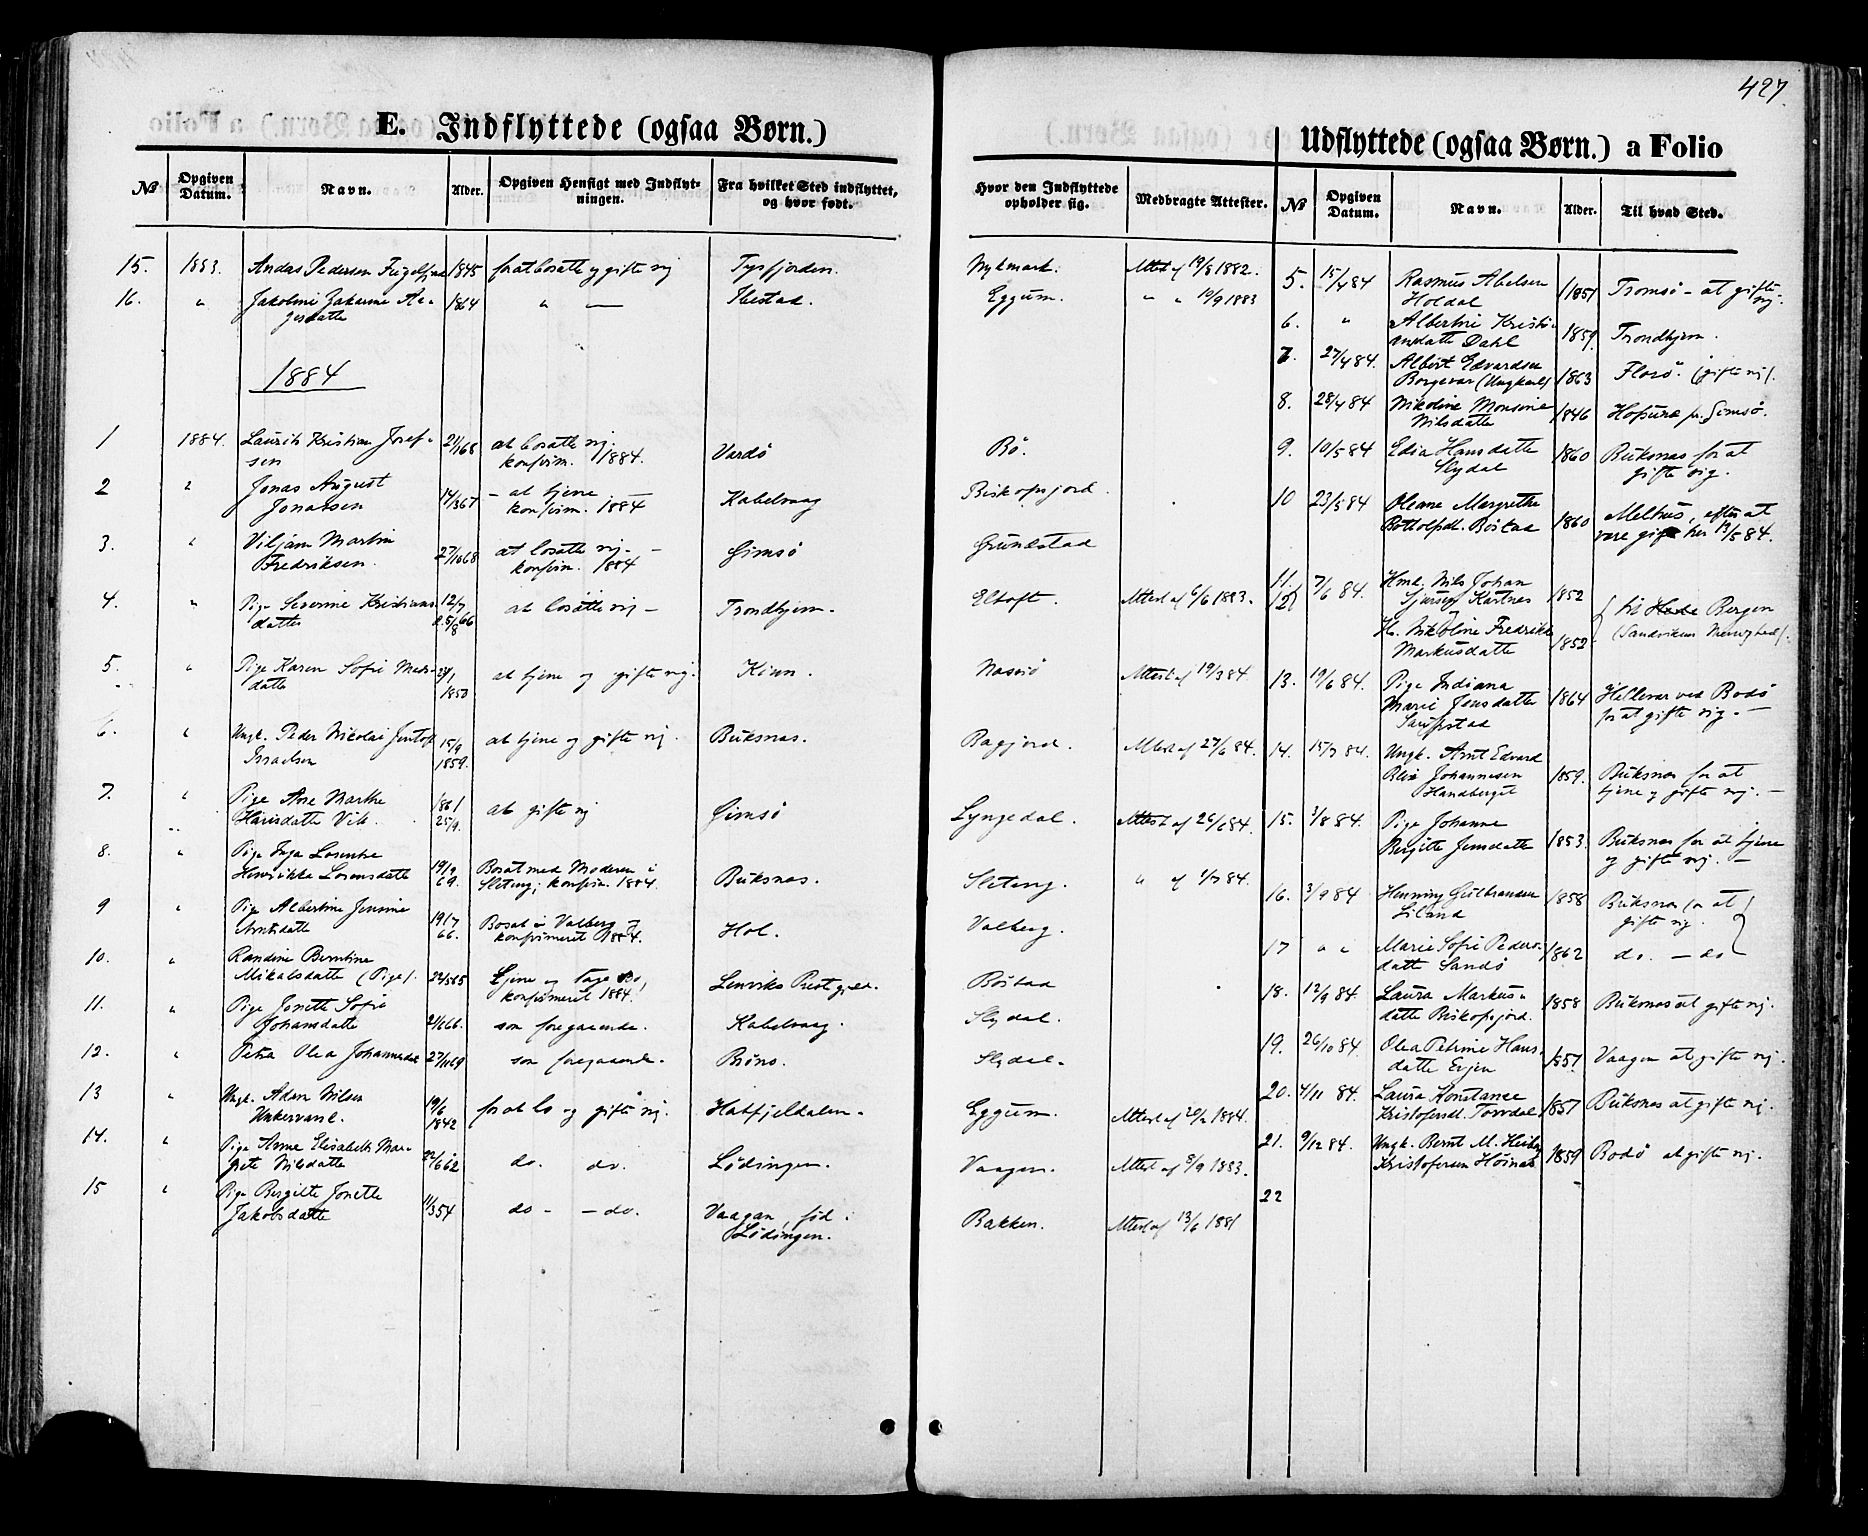 427.
E. Indflyttede (ogsaa Børn.)
Udflyttede (ogsaa Børn.) a Folio
№ Opgiven Datum. Navn. Alder. Opgiven Hensigt med Indflytningen. Fra hvilket Sted indflyttet, og hvor født. Hvor den Indflyttede opholder sig. Medbragte Attester.
№ Opgiven Datum. Navn. Alder. Til hvad Sted.
15. 1883. Andas Pedersen 1845 for at bosætte og gifte sig Tysfjorden. Nykmark. Attest af 19/8 1882.
16. " Jakobine Jakamine Aa-
gesdatte 1864 " — Ibestad. Eggum. " " 10/9 1883
1884
1 1884. Laurits Kristian Josef-
sen 21/1 68 at bosætte sig.
konfirm. 1884. Vardö Bö.
2 " Jonas August
Jonassen 14/3 67 – at tjene —
konfirm. 1884 Kabelvaag Biskopsjord.
3. " Viljam Martin
Fredriksen. 27/10 68 at bosætte sig. –
konfirm. 1884 Gimsö Grundstad
4. " Pige Severine Kristians-
datter 12/7 66
d. 5/8 at bosætte sig – Trondhjem. Eltoft. Attest af 6/6 1883.
5. " Pige Karen Sofie Mads-
datte 24/1
1850 at tjene og gifte sig. Kinn. Attest af 19/3 84.
6. " Ungk. Peder Nikolai Jentoft
Israelsen 15/9
1859. at tjene og gifte sig. Buksnæs. Ragjord. Attest af 27/6 84.
7. " Pige Ane Marthe
Hansdatte Vik. 1861
25/9. at gifte sig Gimsö Lyngedal. Attest af 26/6 84.
8. " Pige Inga Lorentse
Henrikke Lorensdatte 19/9
69. Bosat med Moderen i
Sletteng; konfirm. 1884. Buksnæs. Sletteng. " af 1/7 84.
9 " Pige Albertine Jensine
Arntsdatte 19/7
66. Bosat i Valberg,
konfirmeret 1884. Hol. Valberg.
10. " Randine Berntine
Mikalsdatte (Pige). 22/5 65 Tjene og tage Bo,
konfirmeret 1884. Lenviks Prestgjeld. Böstad
11. " Pige Jonette Sofie
Johansdatte 21/6 66. som foregaaende. Kabelvaag. Slydal.
12. " Petra Olea Johannesdat 27/11 69 som foregaaende. Bönes. Slydal.
13 " Ungk. Adam Nilsen
Unkervand. 19/6
1842 for at bo og gifte sig. Hatfjeldalen. Eggum. Attest af 20/2 1884.
14. " Pige Anne Elisabeth Mar-
grete Nilsdatte 22/6 62 do. do. Lödingen. Vaagen. Attest af 8/9 1883.
15 " Pige Bergitte Jonette
Jakobsdatte 11/3 54 do – – do. Vaagan, föd i
Lödingen. Bakken. Attest af 13/6 1881
5. 15/4 84 Rasmus Abelsen
Holdal 1851 Tromsö – at gifte
sig.
6. " Albertine Kristi-
ansdatte Dahl 1859. Trondhjem.
7. 27/4 84. Albert Edvardsen
Borgevær (Ungkarl) 1863 Florö. (gifte sig).
8. 28/4 84 Nikoline Monsine
Nilsdatte 1846 Hopsund pr. Gimsö.
9. 10/5 84 Edia Hansdatte
Slydal 1860 Buksnæs for at
gifte sig.
10 23/5 84 Oleane Margrethe
Bottolfsdt. Böstad 1860 Melhus, efter at
være gift her 13/5 84.
11.
12. 7/6 84. Hmd. Nils Johan
Kartnes 1852
H. Nikoline Fredrikke
Markusdatte 1852 til Bergen
(Sandvikens Menighed).
13. 19/6 84. Pige Indiana
Marie Jensdatte
Saupstad 1864 Hellevær ved Bodö
for at gifte sig. –
14. 15/7 84. Ungk. Arnt Edvard
Olai Johannesen
Handberget 1859. Buksnæs for at
tjene og gifte sig. –
15. 3/8 84. Pige Johanne
Bergitte Jensdatte 1853. Buksnæs for at tjene
og gifte sig. –
16. 3/9 84 Henning Gulbransen
Liland 1858 Buksnæs for at
gifte sig.
17 " " Marie Sofie Peders-
datte Sandö 1862 do. – do
18. 12/9 84. Laura Markus-
datte Biskopsjord. 1858 Buksnæs at gifte sig.
19. 26/10 84. Olea Petrine Hans-
datte Evjen 1857 Vaagen at gifte sig.
20. 4/11 84. Laura Konstanse
Kristofersdt. Torvdal 1857 Buksnæs at gifte sig.
21. 9/12 84. Ungk. Bernt M. Heiberg
Kristofersen Höinæs 1859 Bodö at gifte sig.
22